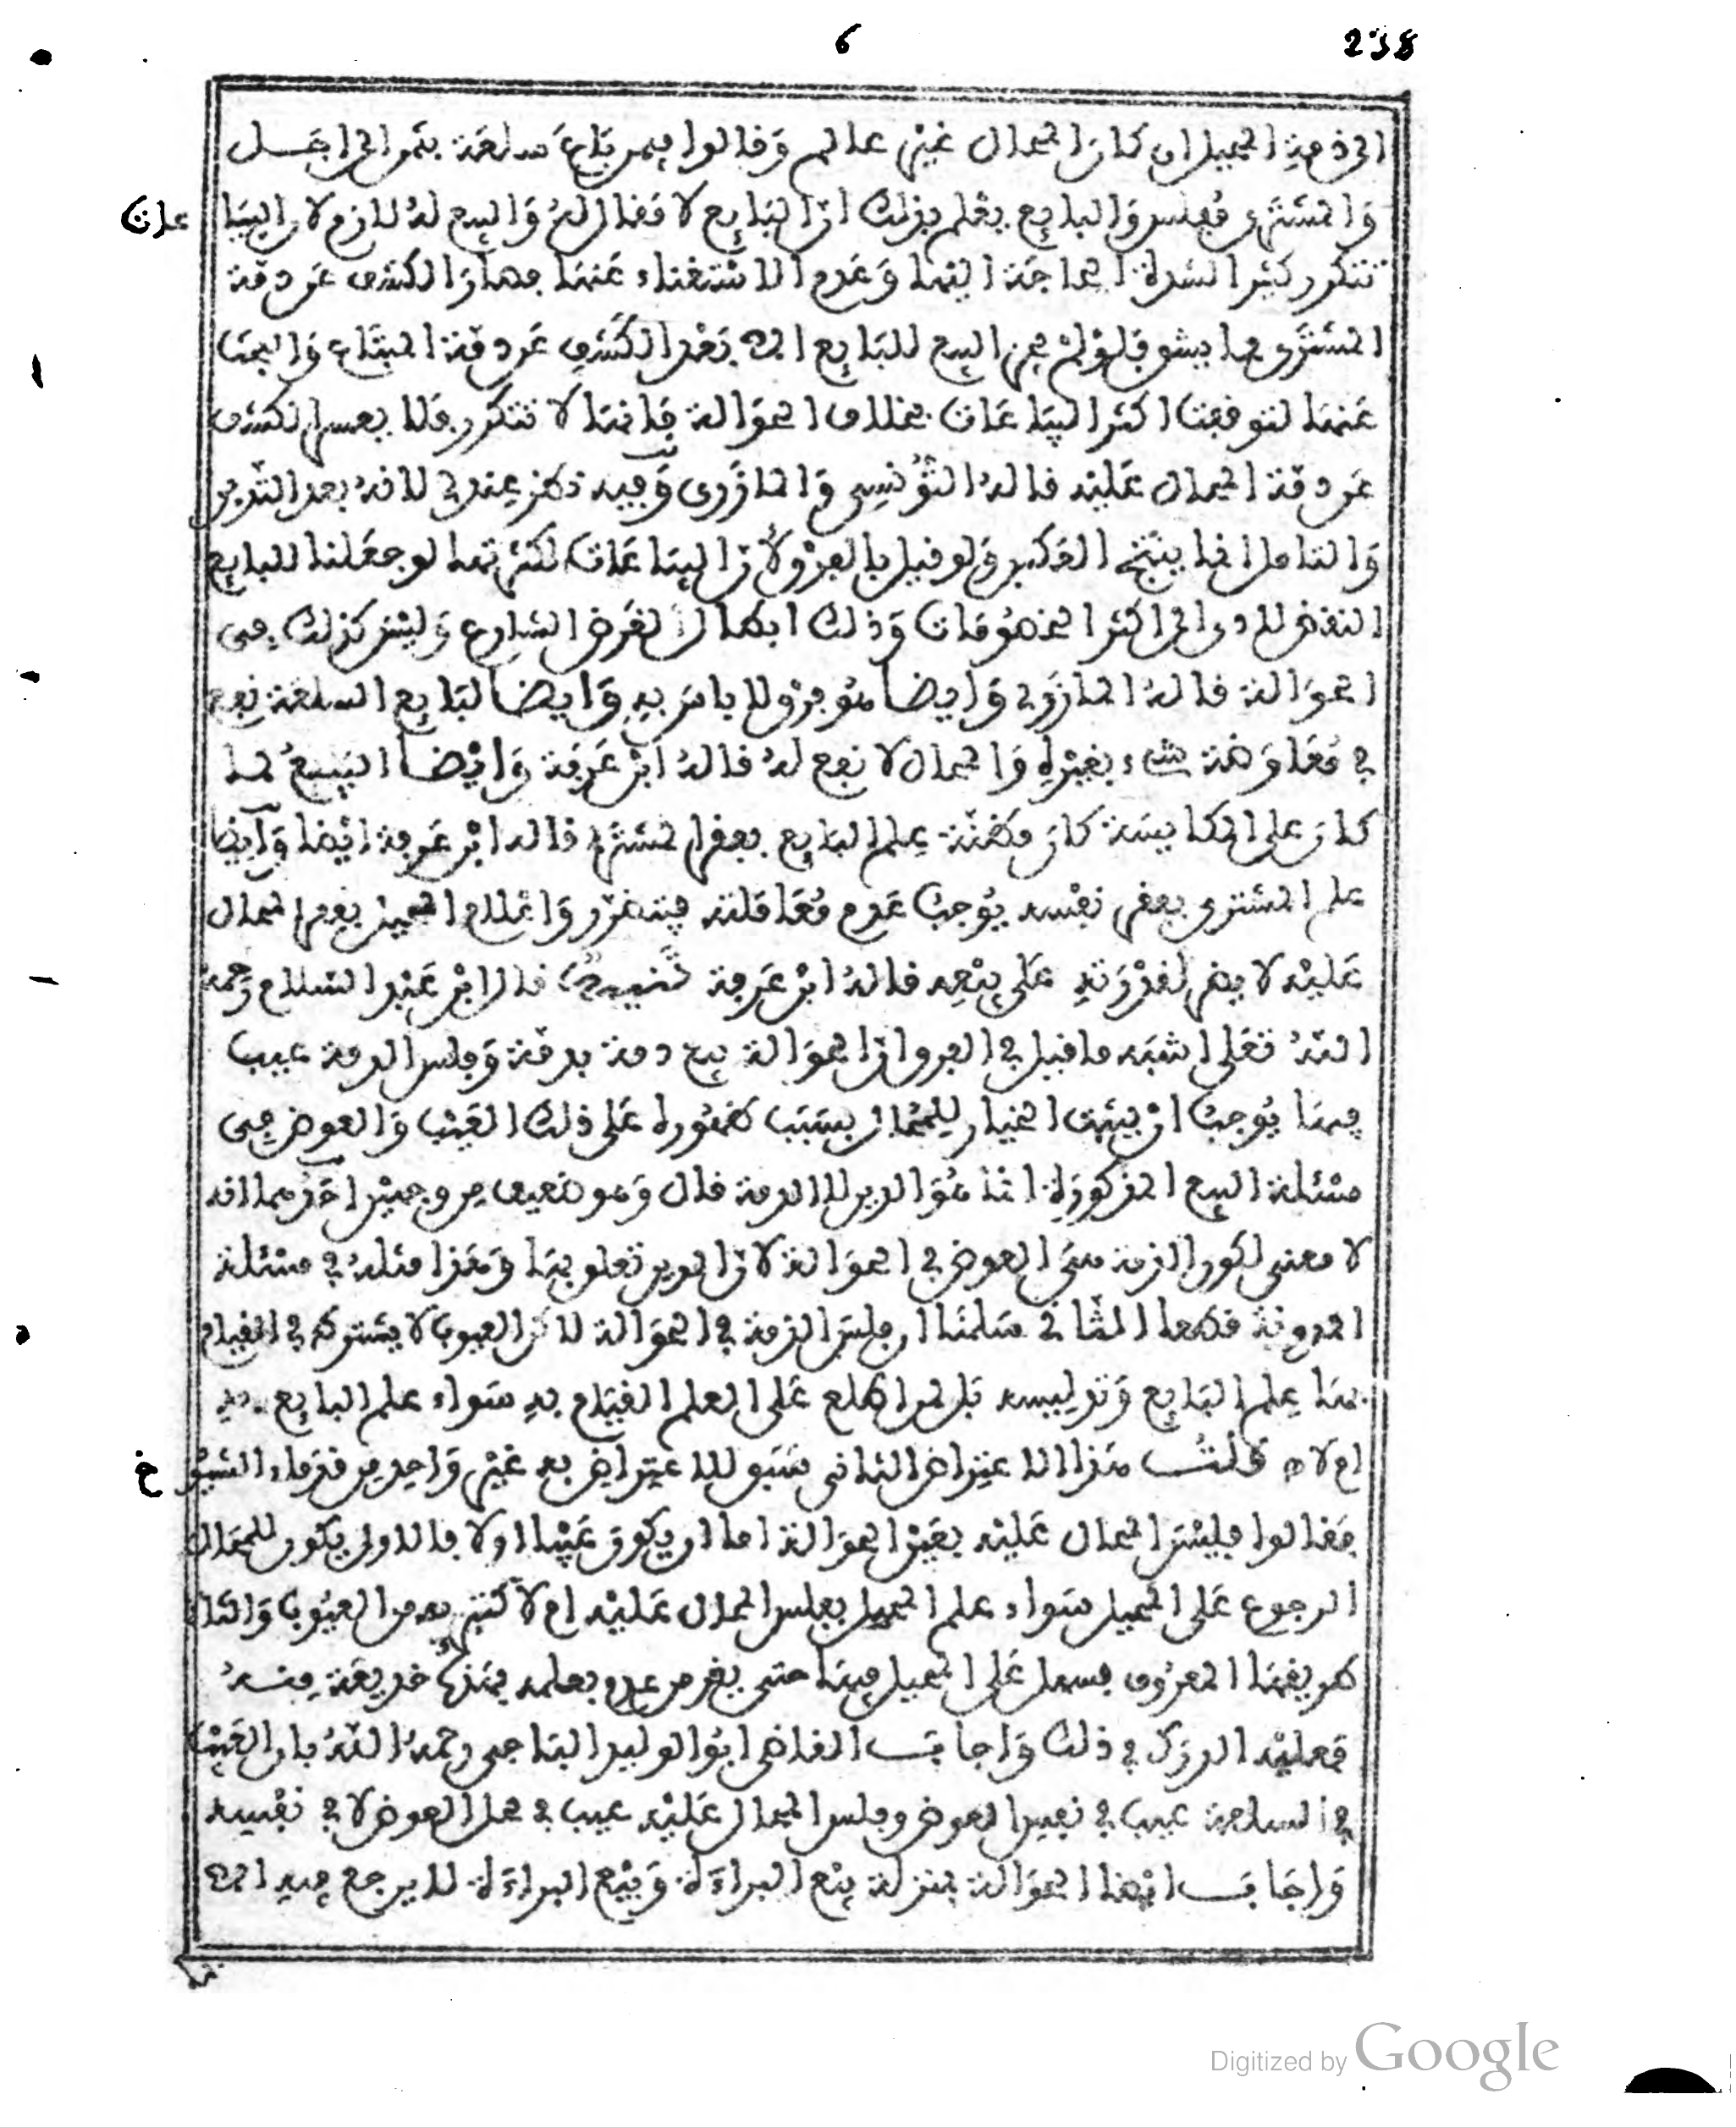 6 238
الى ذمة المحيل ان كان المحال غير عالم وقالوا فيمن باع سلعة بثمن الى اجل
والمشترى مفلس والبايع يعلم بذلك ان البايع لا مقال له والبيع له لازم لان البيا
عات
تتكرر كثيرا لشدة الحاجة اليها وعدم الاستغناء عنها فصار الكشف عن ذمة
المشترى مما يشق فلو لم يجز البيع للبايع الا بعد الكشف عن ذمة المبتاع والبحث
عنها لتوقفت اكثر البياعات بخلاف الحوالة فانها لا تتكرر فلا يعسر الكشف
عن ذمة المحال عليه قاله التونسي والمازري وفيه نظر عندي لانه بعد التدبر
والتامل انما ينتج العكس ولو قيل بالفرق لان البياعات لكثرتها لو جعلنا للبايع
النقض للادى الى اكثر الخصومات وذلك ابطال لغرض الشارع وليس كذلك في
الحوالة قاله المازري وايضا هو فرق لا باس به وايضا لبايع السلعة نفع
في معاوضة شيء بغيره والمحال لا نفع له قاله ابن عرفة وايضا البيع لما
كان على المكايسة كان مظنة علم البايع بفقر المشترى قاله ابن عرفة ايضا وايضا
علم المشترى بفقر نفسه يوجب عدم معاملته فيتضرر واعلام المحيل بفقر المحال
عليه لا يضر لقدرته على بيعه قاله ابن عرفة تنبيه قال ابن عبد السلام رحمه
الله تعلى اشبه ما قيل في الفرق ان الحوالة بيع ذمة بذمة وفلس الذمة عيب
فيها يوجب ان يثبت الخيار للمحال بسبب ظهوره على ذلك العيب والعوض في
مسئلة البيع المذكورة انما هو الدين لا الذمة قال وهو ضعيف من وجهين احدهما انه
لا معنى لكون الذمة هي العوض في الحوالة لان الدين تعلق بها وهذا مثله في مسئلة
المدونة قطعا الثاني سلمنا ان فلس الذمة في الحوالة لاكن العيوب لا يشترط في القيام
بها علم البايع وتدليسه بل لمن اطلع على العلم القيام به سواء علم البايع به
ام لا قلت هذا الاعتراض الثاني سبق للاعتراض به غير واحد من قدماء الشيو
خ
فقالوا فليس المحال عليه بغير الحوالة اما ان يكون عيبا اولا فالاول يكون للمحال
الرجوع على المحيل سواء علم المحيل بفلس المحال عليه ام لا كغيره من العيوب والثانى
طريقها المعروف فسهل على المحيل فيها حتى يغر من عدم بعلمه فهذا خديعة منه
فعليه الدرك في ذلك واجاب القاضى ابو الوليد الباجى رحمه الله بان العيب
في السلعة عيب في نفس العوض وفلس المحال عليه عيب في محل العوض لا في نفسه
واجاب ايضا الحوالة بمنزلة بيع البراءة وبيع البراءة لا يرجع فيه الا
بما
Digitized by Google